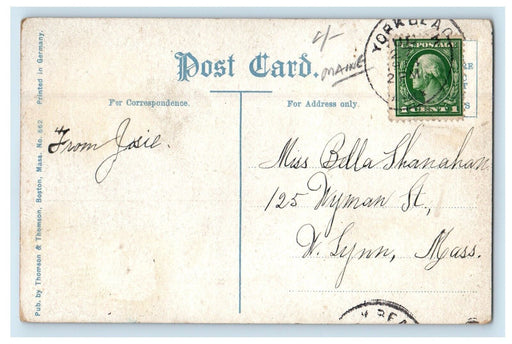 Post Card.
4/-
MAINE
YORK BEACH
U.S. POSTAGE
1 CENT 1
For Correspondence.
For Address only.
From Josie.
Miss Bella Shanahan
125 Wyman St.,
W. Lynn, Mass.
Pub. by Thomson & Thomson, Boston, Mass. No. 662 Printed in Germany.